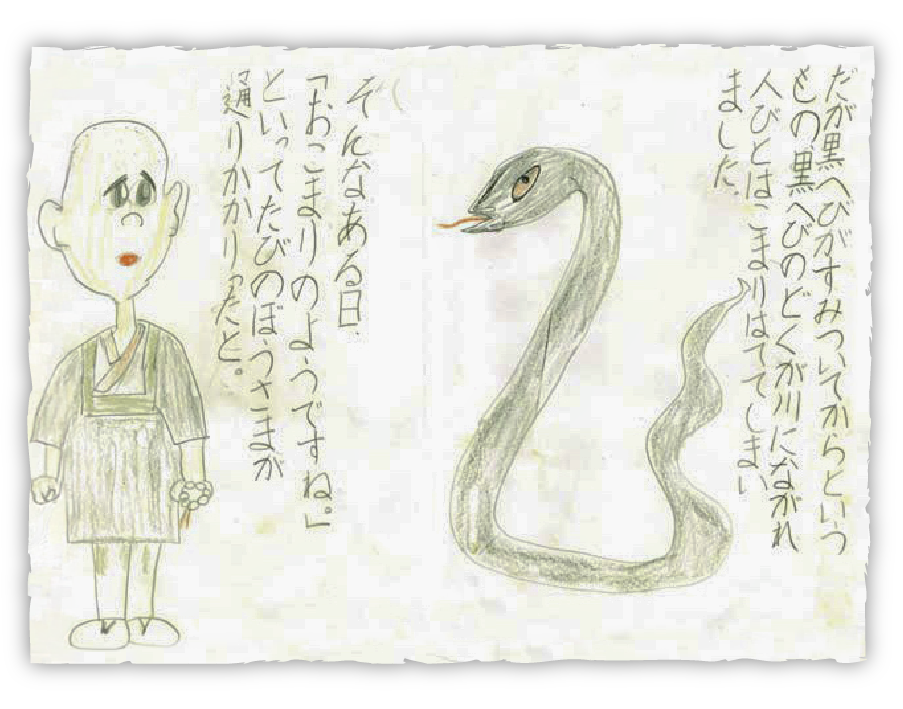 だが黒へびがすみついてからというつ
もの黒へびのどくが川にながれ
人びとはこまりはててしまい
ました。
そんなある日
「おこまりのようですね。」
といってたびのぼうさまが
通りかかりったと。